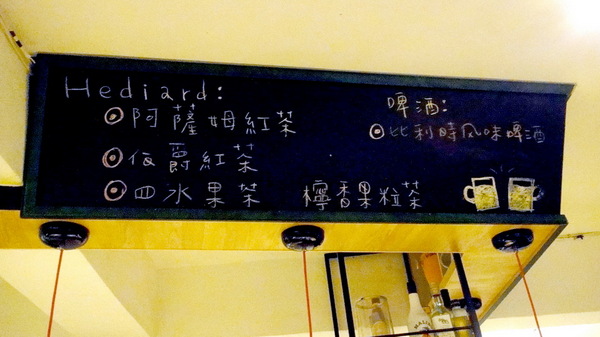 Hediard:
阿薩姆紅茶
伯爵紅茶
四水果茶
檸香果粒茶
啤酒:
比利時風味啤酒